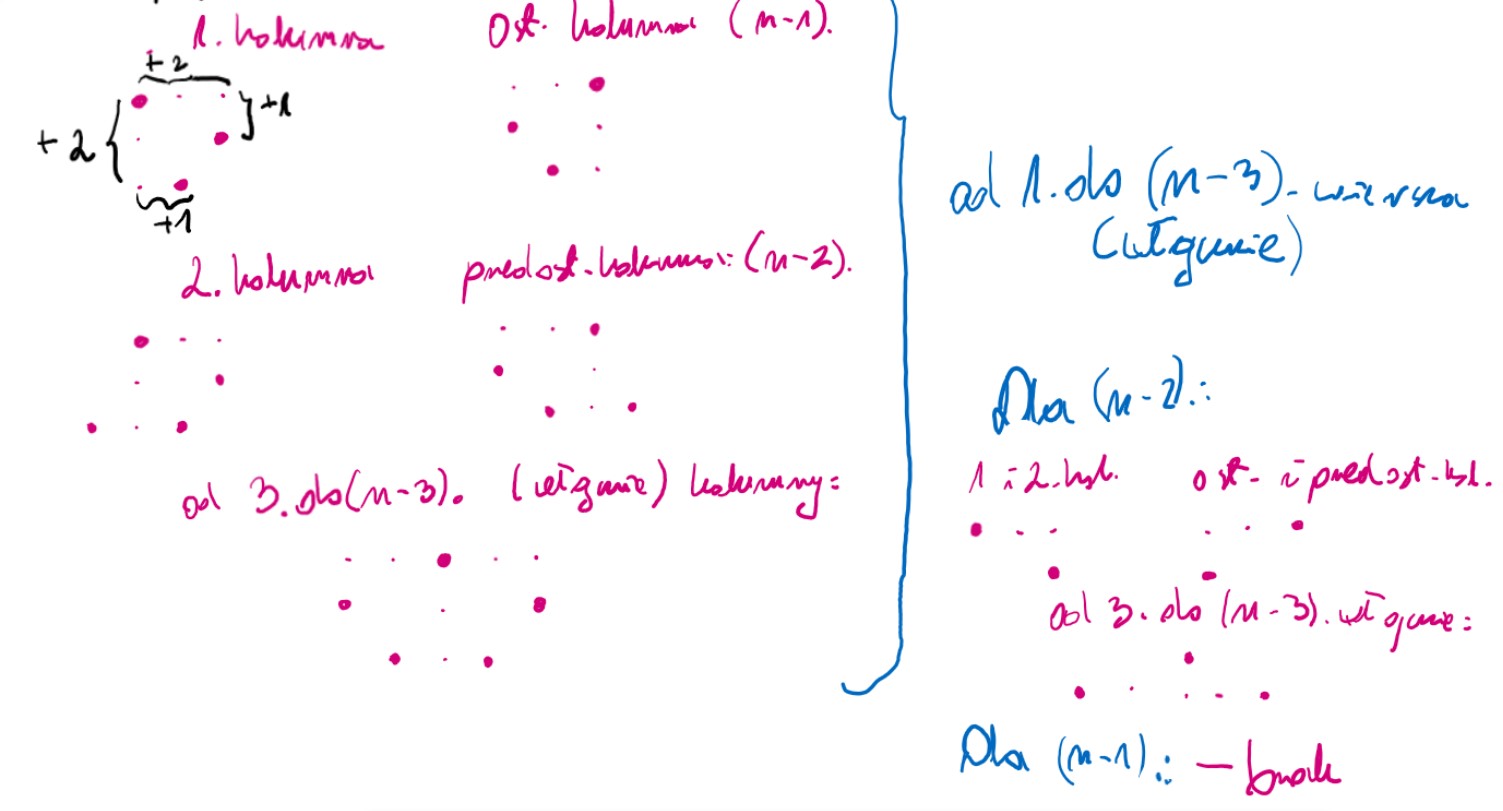 1. kolumna
ost. kolumna (n-1).
+2
+2
+1
+1
2. kolumna
predost. kolumna: (n-2).
od 3. do (n-3). (włącznie) kolumny:
od 1. do (n-3). wiersza
(włącznie)
Dla (n-2).:
1 i 2. kol.
ost. i predost. kol.
od 3. do (n-3). włącznie:
Dla (n-1).: - brak